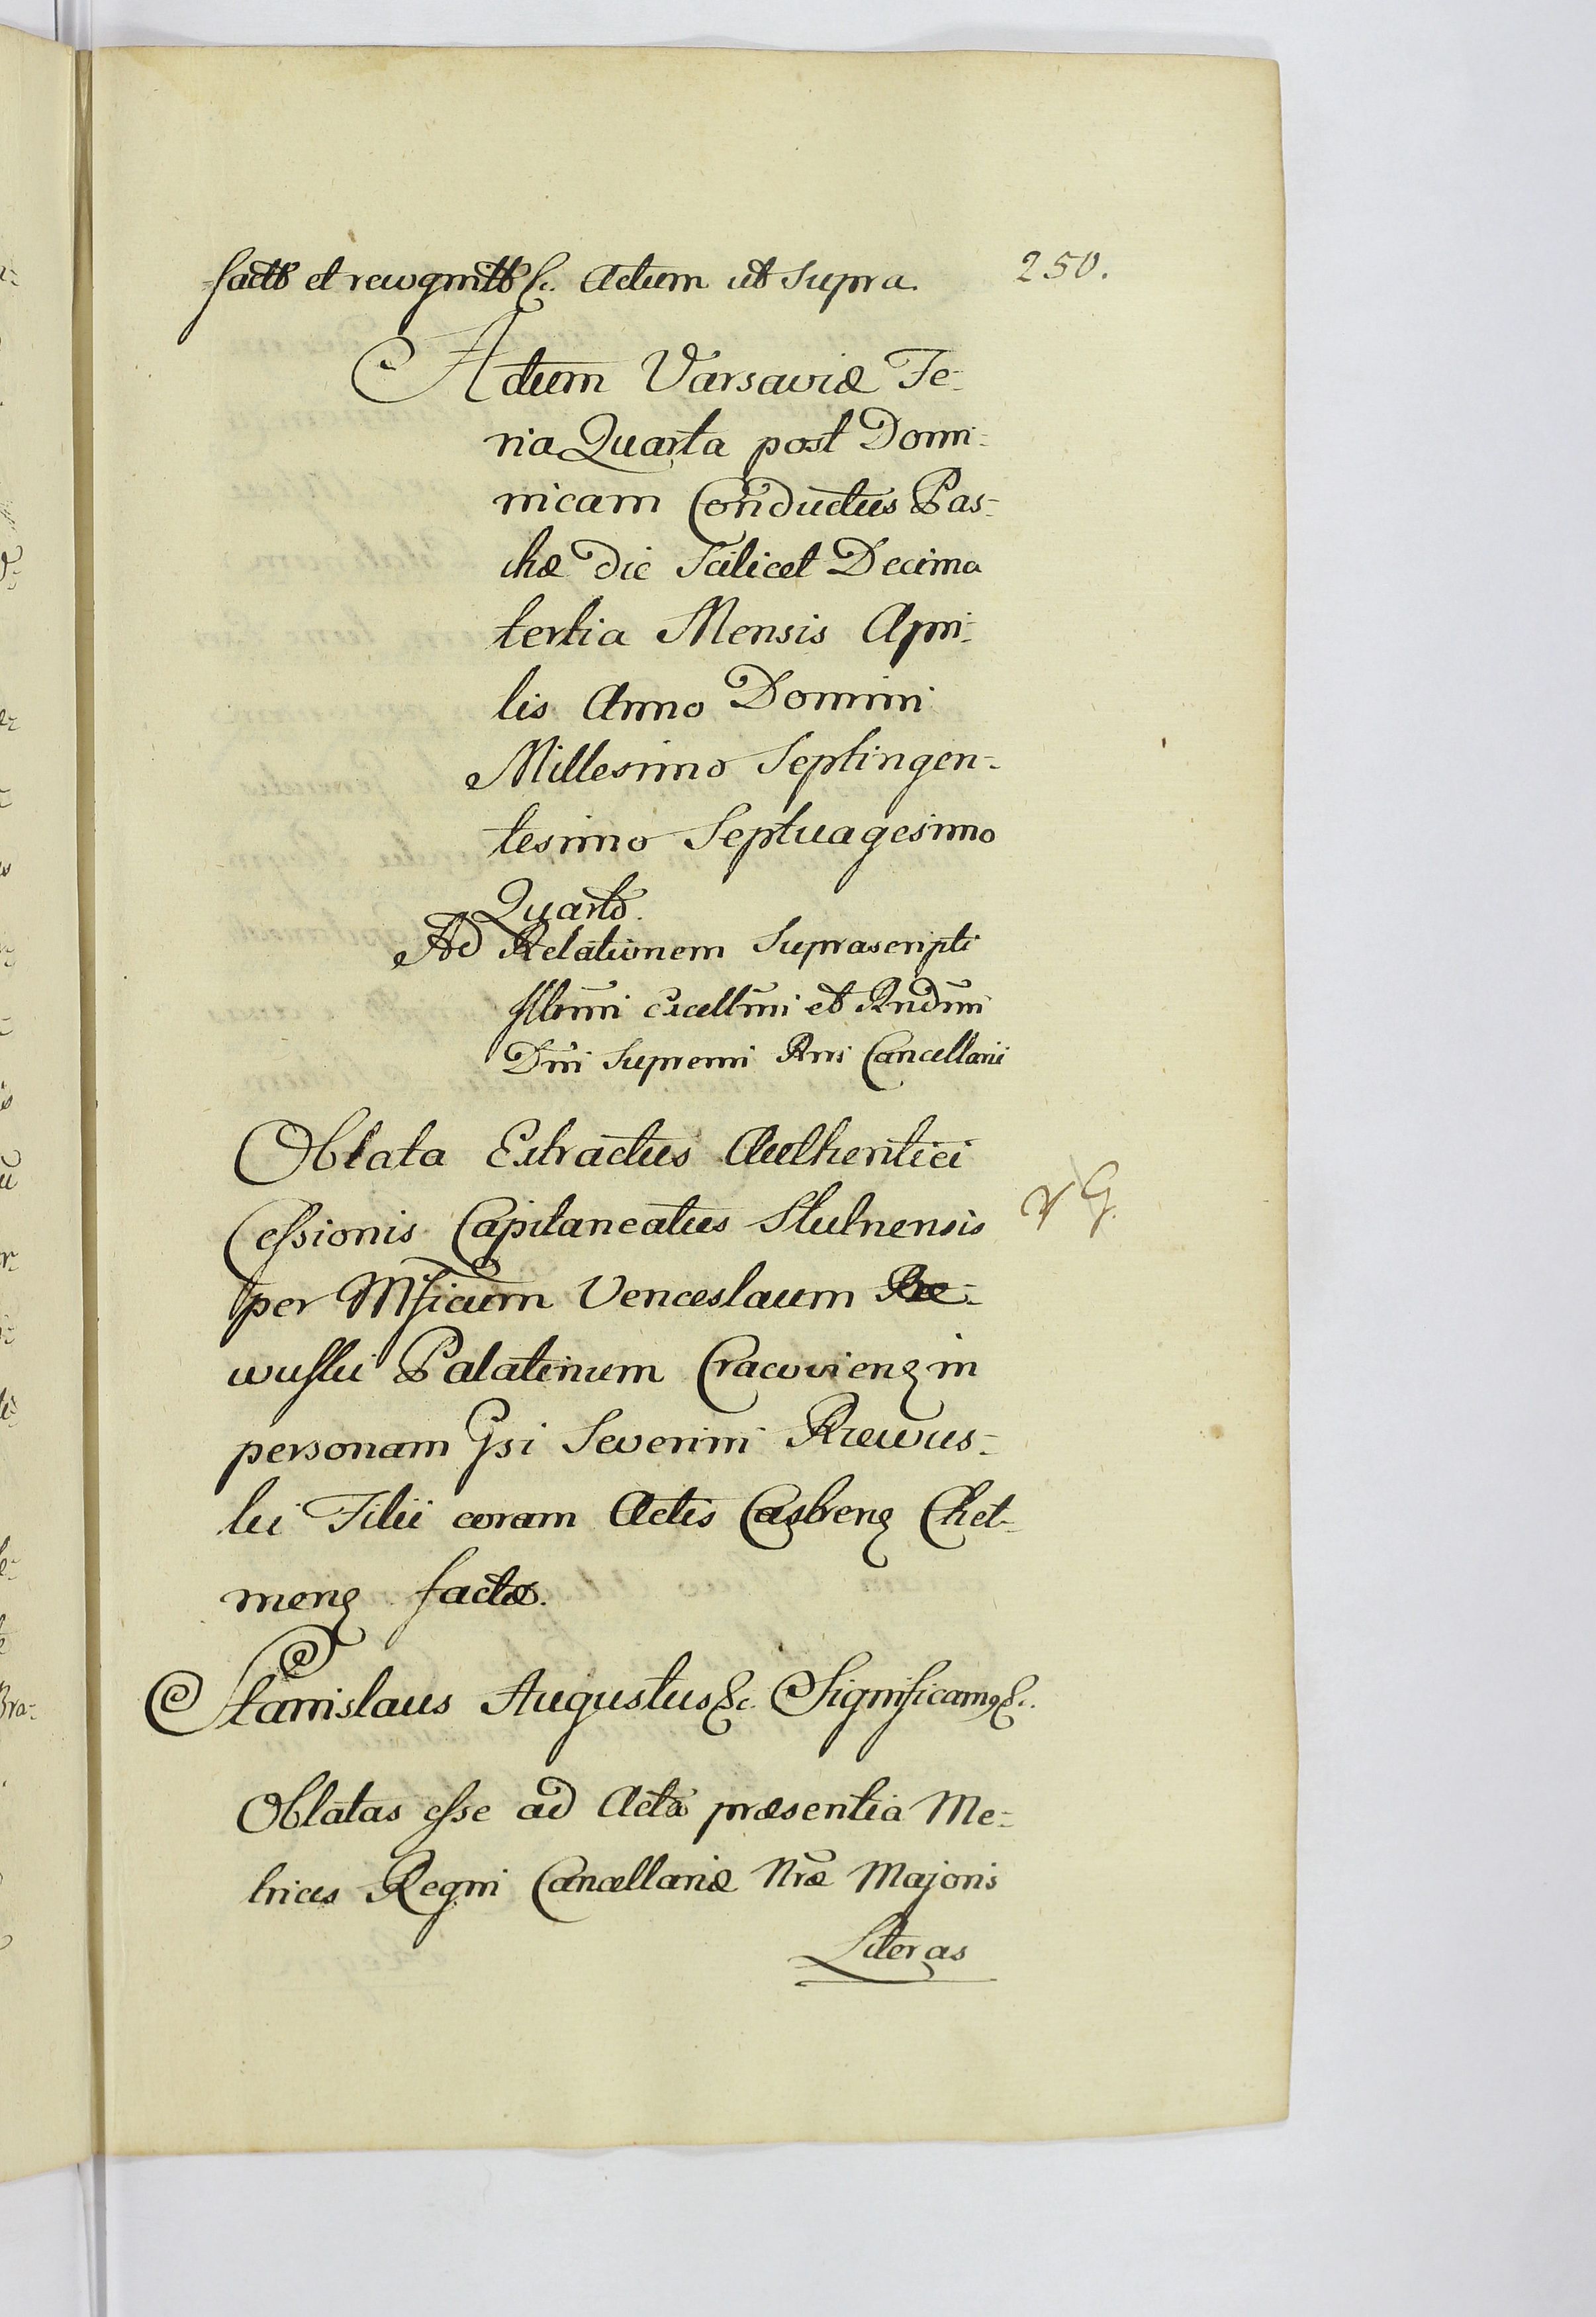 250.
factt et recognitt &c. Actum ut supra.
Actum Varsaviæ Fe-
ria Quarta post Domi-
nicam Conductus Pas-
chæ Die Scilicet Decima
tertia Mensis Apri-
lis Anno Domini
Millesimo Septingen-
tesimo Septuagesimo
Quarto.
Ad Relationem Suprascripti
Illmi Excellmi et Rndmi
Dni Supremi Rni Cancellarii
Oblata Extractus Authentici
Cessionis Capitaneatus Stulnensis
per Mficum Venceslaum Rze-
wuski Palatinum Cracovien in
personam Gsi Severini Rzewus-
ki Filii coram Actis Castren Cheł-
men factæ.
Stanislaus Augustus &c. Significamq &c.
Oblatas esse ad Acta præsentia Me-
trices Regni Cancellariæ Nræ Majoris
Literas